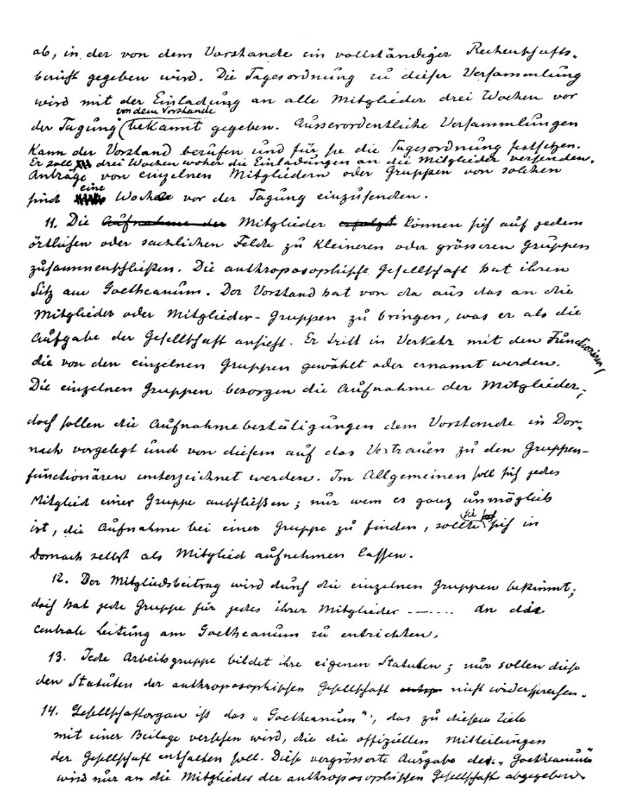 ab, in der von dem Vorstande ein vollständiger Rechenschafts-
bericht gegeben wird. Die Tagesordnung zu dieser Versammlung
wird mit der Einladung an alle Mitglieder drei Wochen vor
von dem Vorstande
der Tagung bekannt gegeben. Ausserordentliche Versammlungen
kann der Vorstand berufen und für sie die Tagesordnung festsetzen.
Er soll drei Wochen vorher die Einladungen an die Mitglieder versenden.
Anträge von einzelnen Mitgliedern oder Gruppen von solchen
sind eine Woche vor der Tagung einzusenden.
11. Die Aufnahme der Mitglieder erfolgt können sich auf jedem
örtlichen oder sachlichen Felde zu kleineren oder grösseren Gruppen
zusammenschließen. Die anthroposophische Gesellschaft hat ihren
Sitz am Goetheanum. Der Vorstand hat von da aus das an die
Mitglieder oder Mitglieder-Gruppen zu bringen, was er als die
Aufgabe der Gesellschaft ansieht. Er tritt in Verkehr mit den Functionären,
die von den einzelnen Gruppen gewählt oder ernannt werden.
Die einzelnen Gruppen besorgen die Aufnahme der Mitglieder;
doch sollen die Aufnahmebestätigungen dem Vorstande in Dor-
nach vorgelegt und von diesem auf das Vertrauen zu den Gruppen-
functionären unterzeichnet werden. Im Allgemeinen soll sich jedes
Mitglied einer Gruppe anschließen; nur wem es ganz unmöglich
ist, die Aufnahme bei einer Gruppe zu finden, sollte sich in
Dornach selbst als Mitglied aufnehmen lassen.
12. Der Mitgliedsbeitrag wird durch die einzelnen Gruppen bestimmt;
doch hat jede Gruppe für jedes ihrer Mitglieder ------- an die
centrale Leitung am Goetheanum zu entrichten.
13. Jede Arbeitsgruppe bildet ihre eigenen Statuten; nur sollen diese
den Statuten der anthroposophischen Gesellschaft nicht widersprechen.
14. Gesellschaftsorgan ist das „Goetheanum", das zu diesem Ziele
mit einer Beilage versehen wird, die die offiziellen Mitteilungen
der Gesellschaft enthalten soll. Diese vergrösserte Ausgabe des „Goetheanum"
wird nur an die Mitglieder der anthroposophischen Gesellschaft abgegeben.